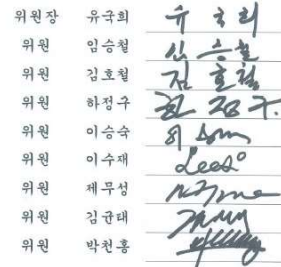 위원장 유국희 유국희
위원 임승철 임승철
위원 김호철 김호철
위원 하정구 하정구
위원 이승숙
위원 이수재 Lees
위원 제무성
위원 김균태
위원 박천홍